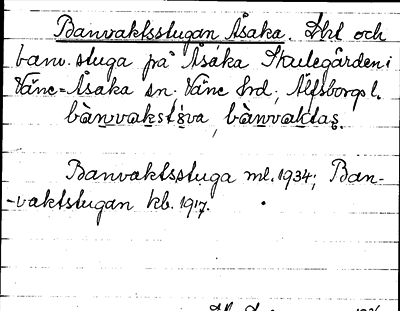 Banvaktsstugan Åsaka. Lht och
banv. stuga på Åsaka Skulegården i
Väne-Åsaka sn. Väne hrd, Älfsborgs l.
bànvakstöva, bànvaktas.
Banvaktsstuga ml. 1934; Ban-
-vaktstugan kb. 1917.